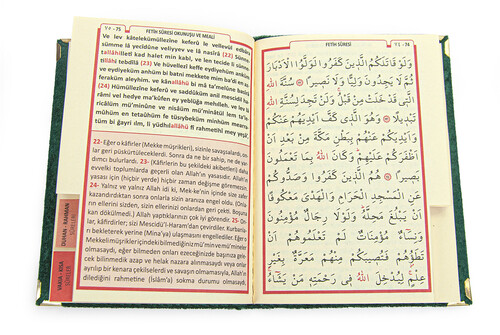 ٧٥ - 75
FETİH SÛRESİ OKUNUŞU VE MEALİ
Ve lev kâtelekümüllezîne keferû le vellevül edbâra
sümme lâ yecidûne veliyyev ve lâ nasîra (22) Sünne
tallâhilletî kad halet min kabl, ve len tecide li sünneti
tillâhi tebdîlâ (23) Ve hüvellezî keffe eydiyehüm anküm
ve eydiyeküm anhüm bi batni mekkete mim ba'di en
feraküm aleyhim, ve kânallâhü bi mâ ta'melûne basîrâ
(24) Hümüllezîne keferû ve saddûküm anil mescidil ha
râmi vel hedye ma'kûfen ey yeblüğa mehılleh, ve lev lâ
ricâlüm mü'minûne ve nisâüm mü'minâtül lem ta'le
mûhüm en tetaûhüm fe tüsıybeküm minhüm
tüm bi ğayri ılm, li yüdhılallâhü fî rahmetihî mey yeşâ',
22- Eğer o kâfirler (Mekke müşrikleri), sizinle savaşsalardı,
lar geri püskürtüleceklerdi. Sonra da ne bir sahip, ne de
dımcı bulurlardı. 23- (Kâfirlerin bu şekildeki akibetleri) daha
evvelki toplumlarda geçerli olan Allah'ın yasasıdır. Allah'ın
yasası için (hiçbir yerde) hiçbir zaman değişme göremezsin.
24- Yalnız ve yalnız Allah idi ki, Mek-ke'nin içinde size zafer
kazandırdıktan sonra onlarla sizin aranıza engel oldu. (Onla-
rın ellerini sizden, sizin ellerinizi onlardan geri çekti. Boşuna
kan dökülmedi.) Allah yaptıklarınızı çok iyi görendir. 25- On-
lar, kâfirdirler; sizi Mescidü'l-Haram'dan çevirdiler. Kurban-
ları bekleterek yerine (Mina'ya) ulaşmasını engellediler. Eğer o
Mekke
olmasaydı, eğer bilmeden onları ezeceğinizde başınıza gele-
cek bilinmedik azap ve helak nazara alınmasaydı veya onlar
ayrılıp bir kenara çekilselerdi ve savaşın olmamasıyla, Allah'ın
dilediğini rahmetine (İslâm'a) sokma durumu olmasaydı,
٧٤ - 74
FETİH SÛRESİ
وَلَوْ قَاتَلَكُمُ الَّذِينَ كَفَرُوا لَوَلَّوُا الْاَدْبَارَ
ثُمَّ لَا يَجِدُونَ وَلِيًّا وَلَا نَصِيرًا سُنَّةَ اللّٰهِ
الَّتِى قَدْ خَلَتْ مِنْ قَبْلُ وَلَنْ تَجِدَ لِسُنَّةِ اللّٰهِ
تَبْدِيلًا وَهُوَ الَّذِى كَفَّ اَيْدِيَهُمْ عَنْكُمْ
وَاَيْدِيَكُمْ عَنْهُمْ بِبَطْنِ مَكَّةَ مِنْ بَعْدِ اَنْ
اَظْفَرَكُمْ عَلَيْهِمْ وَكَانَ اللّٰهُ بِمَا تَعْمَلُونَ
بَصِيرًا هُمُ الَّذِينَ كَفَرُوا وَصَدُّوكُمْ
عَنِ الْمَسْجِدِ الْحَرَامِ وَالْهَدْىَ مَعْكُوفًا
اَنْ يَبْلُغَ مَحِلَّهُ وَلَوْلَا رِجَالٌ مُؤْمِنُونَ
وَنِسَاءٌ مُؤْمِنَاتٌ لَمْ تَعْلَمُوهُمْ اَنْ
تَطَؤُهُمْ فَتُصِيبَكُمْ مِنْهُمْ مَعَرَّةٌ بِغَيْرِ
عِلْمٍ لِيُدْخِلَ اللّٰهُ فِى رَحْمَتِهِ مَنْ يَشَاءُ
DUHAN - RAHMAN